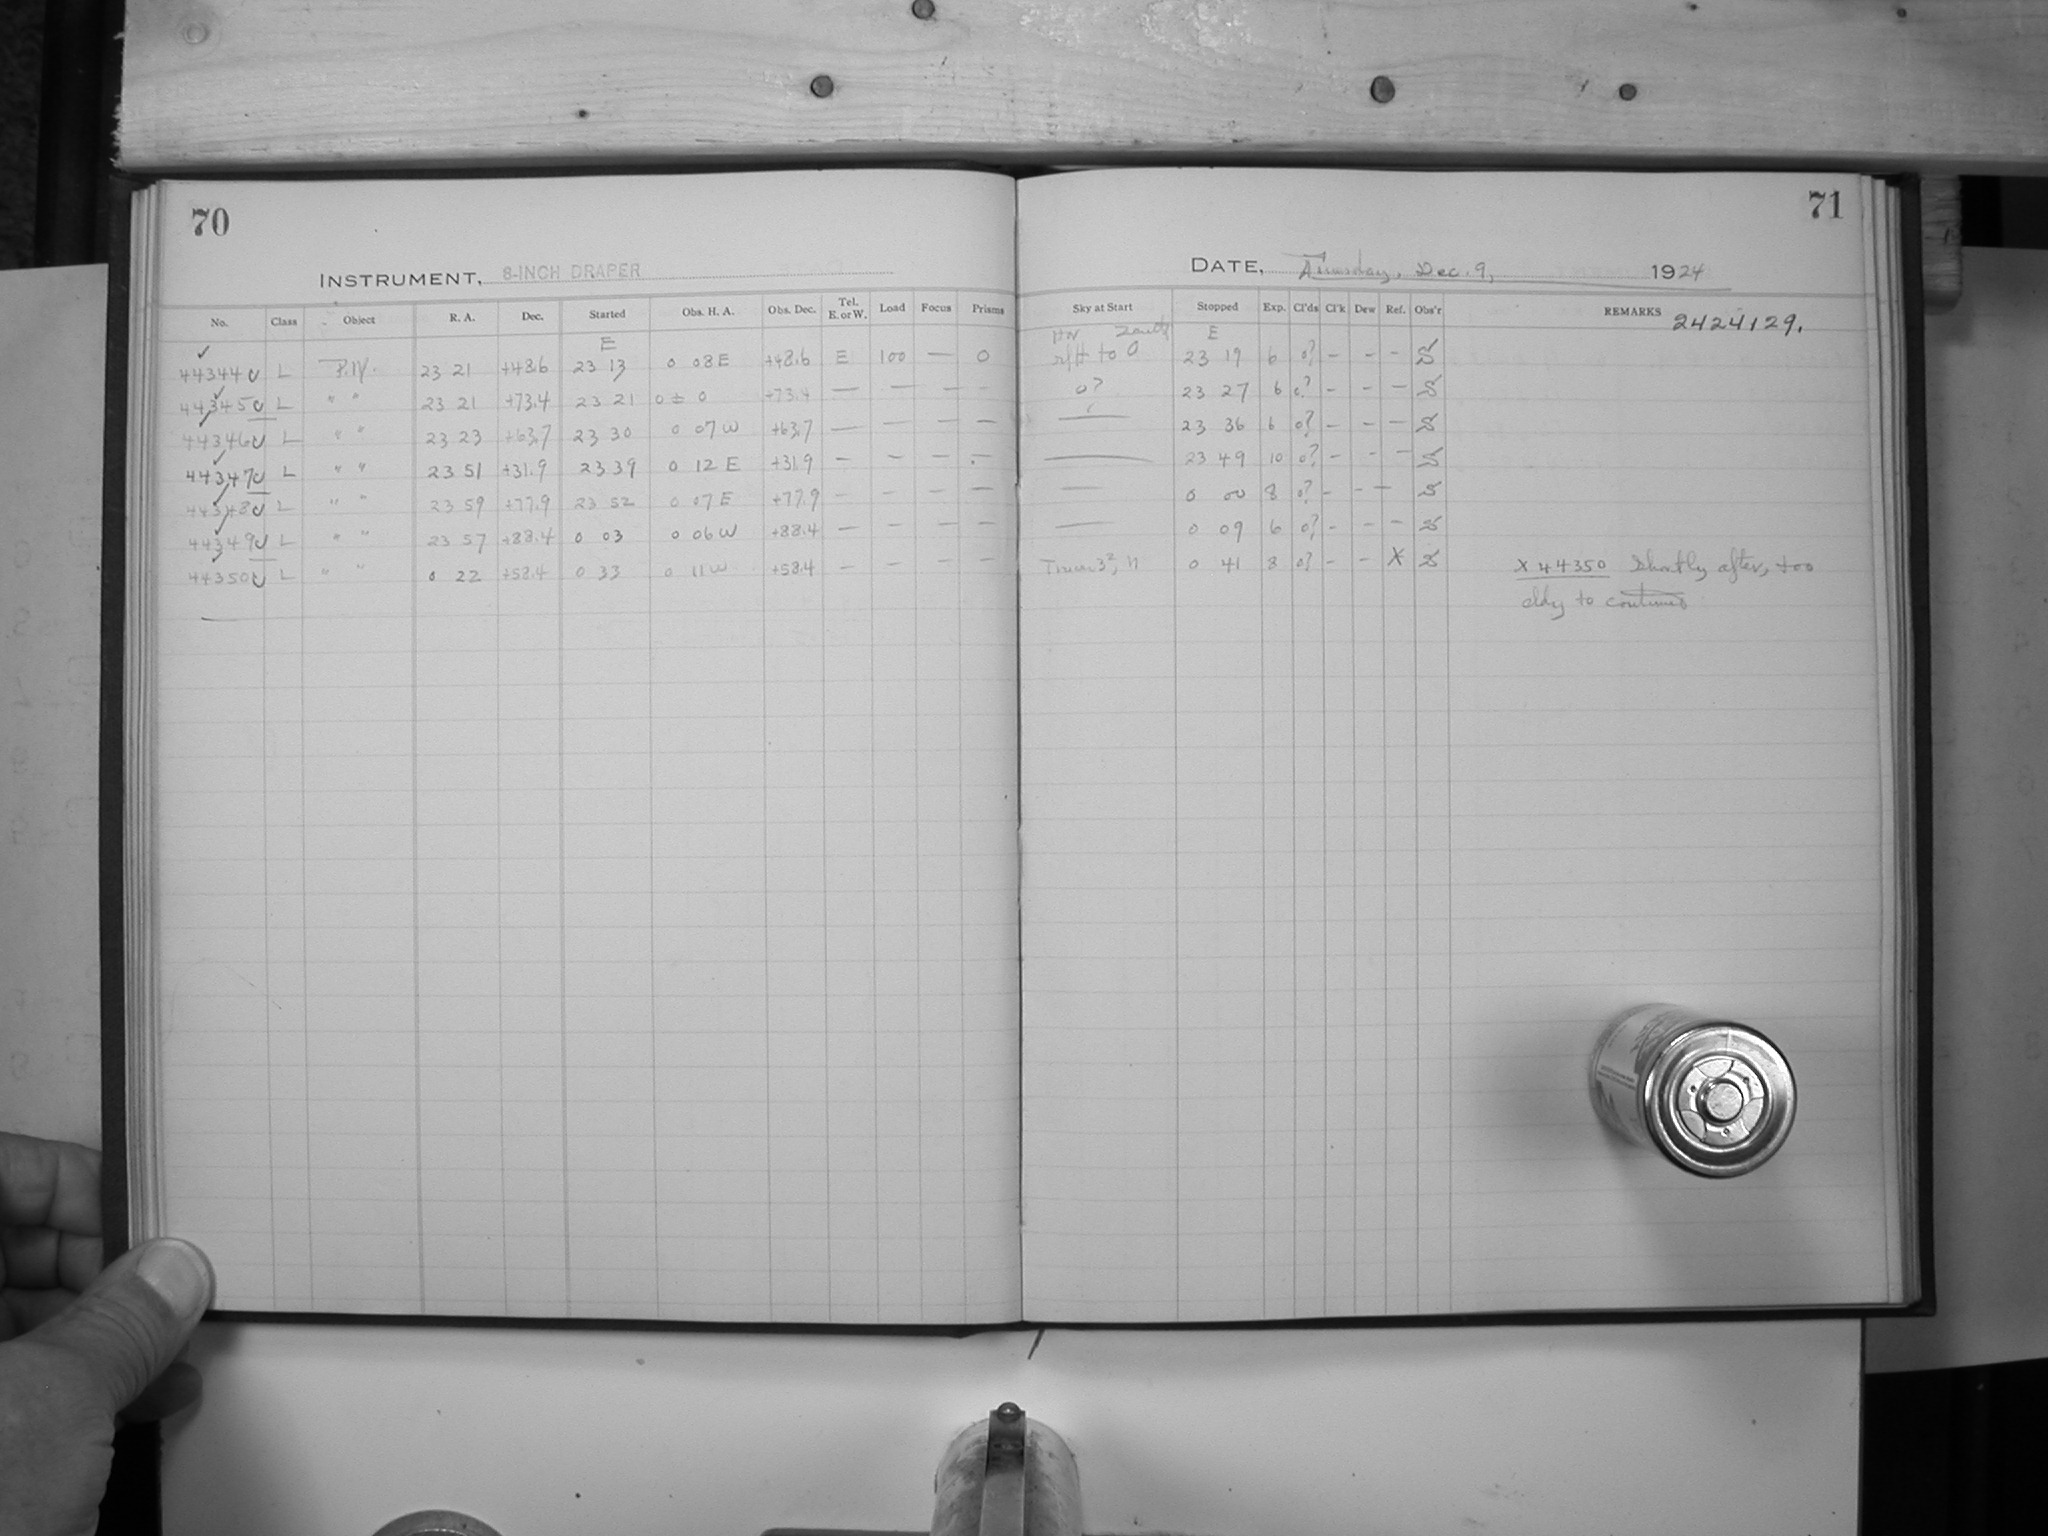 70
INSTRUMENT, 8-INCH DRAPER
No. Class Object R. A. Dec. Started Obs. H. A. Obs. Dec. Tel. E. or W. Load Focus Prisms
E
44344 L P.M. 23 21 +48.6 23 13 0 08 E +48.6 E 100 — 0
44345 L " " 23 21 +73.4 23 21 0 ± 0 +73.4 — — — —
44346 L " " 23 23 +63.7 23 30 0 07 W +63.7 — — — —
44347 L " " 23 51 +31.9 23 39 0 12 E +31.9 — — — —
44348 L " " 23 59 +77.9 23 52 0 07 E +77.9 — — — —
44349 L " " 23 57 +88.4 0 03 0 06 W +88.4 — — — —
44350 L " " 0 22 +58.4 0 33 0 11 W +58.4 — — — —
71
DATE, Tuesday, Dec. 9, 1924
Sky at Start Stopped Exp. Cl'ds Cl'k Dew Ref. Obs'r REMARKS 2424129.
E
to 0 23 19 6 0? — — — S
0? 23 27 6 0? — — — S
— 23 36 6 0? — — — S
— 23 49 10 0? — — — S
— 0 00 8 0? — — — S
— 0 09 6 0? — — — S
0 41 8 0? — — X S X 44350 Shortly after, too
cldy to continue